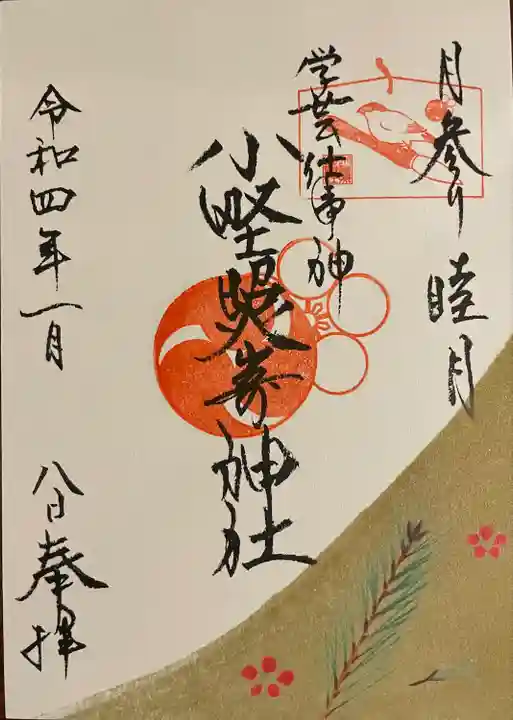 月参り 睦月
学芸仕事神
小野照崎神社
令和四年一月
八日奉拝